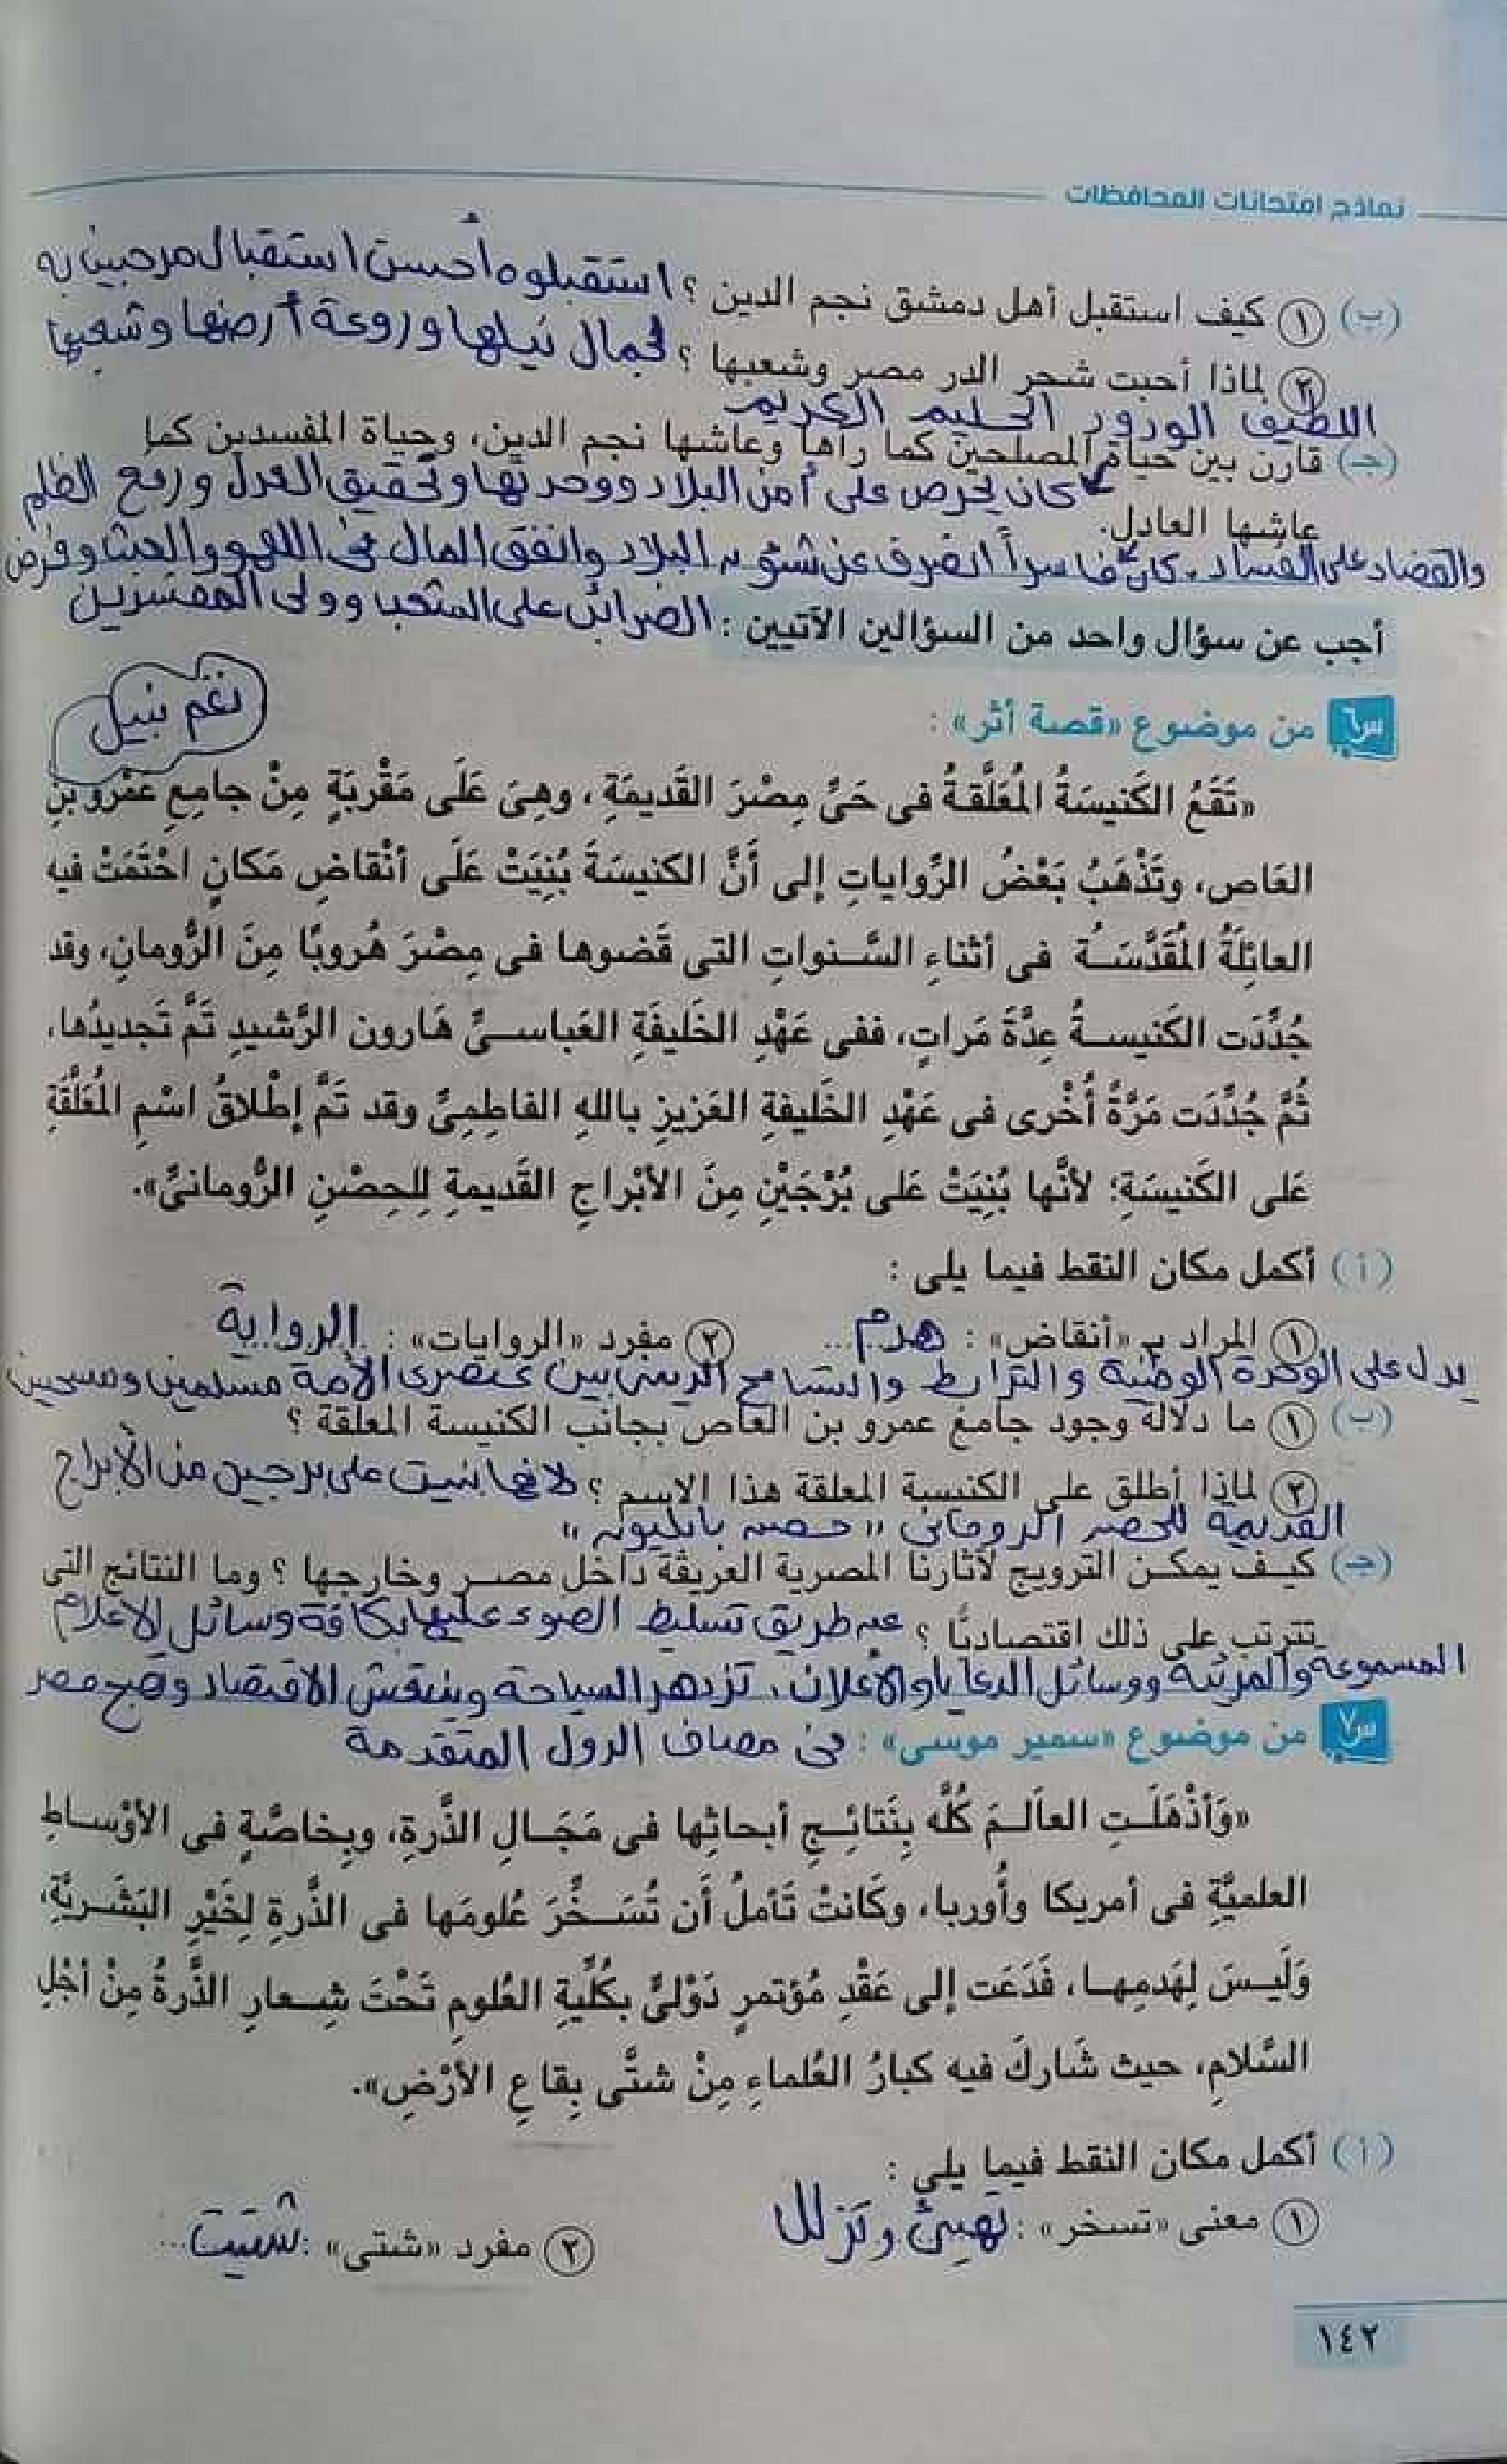 نماذج امتحانات المحافظات
(ب) ١ كيف استقبل أهل دمشق نجم الدين ؟ استقبلوه أحسن استقبال مرحبين به
٢ لماذا أحبت شجر الدر مصر وشعبها ؟ لجمال نيلها وروعة أرضها وشعبها
اللطيف الودود الحليم الكريم
(جـ) قارن بين حياة المصلحين كما رآها وعاشها نجم الدين، وحياة المفسدين كما
كان يحرص على أمن البلاد ووحدتها وتحقيق العدل ورفع الظلم
عاشها العادل.
والقضاء على الفساد. كان فاسداً انصرف عن شئون البلاد وانفق المال فى اللهو والعبث وفرض
أجب عن سؤال واحد من السؤالين الآتيين : الضرائب على الشعب وولى المفسدين
نغم نبيل
س٦ من موضوع «قصة أثر» :
«تَقَعُ الكَنيسَةُ المُعَلَّقةُ فى حَىِّ مِصْرَ القَديمَةِ ، وهِىَ عَلَى مَقْرُبَةٍ مِنْ جامِعِ عَمْرِو بنِ
العَاص، وتَذْهَبُ بَعْضُ الرِّواياتِ إلى أَنَّ الكنيسَةَ بُنِيَتْ عَلَى أنْقاضِ مَكانٍ احْتَمَتْ فيه
العائِلَةُ المُقَدَّسَـةُ فى أثناءِ السَّـنواتِ التى قَضوها فى مِصْرَ هُروبًا مِنَ الرُّومانِ، وقد
جُدِّدَت الكَنيسـةُ عِدَّةَ مَراتٍ، ففى عَهْدِ الخَليفَةِ العَباسـىِّ هَارون الرَّشيدِ تَمَّ تَجديدُها،
ثُمَّ جُدِّدَت مَرَّةً أُخْرى فى عَهْدِ الخَليفةِ العَزيزِ باللهِ الفاطِمِىِّ وقد تَمَّ إطْلاقُ اسْمِ المُعَلَّقَةِ
عَلى الكَنيسَةِ؛ لأنَّها بُنِيَتْ عَلى بُرْجَيْنِ مِنَ الأبْراجِ القَديمةِ لِلحِصْنِ الرُّومانىِّ».
(أ) أكمل مكان النقط فيما يلى :
١ المراد بـ «أنقاض» : هدم... ٢ مفرد «الروايات» : الرواية
يدل على الوحدة الوطنية والترابط والتسامح الدينى بين عنصرى الأمة مسلمين ومسحيين
(ب) ١ ما دلالة وجود جامع عمرو بن العاص بجانب الكنيسة المعلقة ؟
٢ لماذا أطلق على الكنيسة المعلقة هذا الاسم ؟ لانها بنيت على برجين من الأبراج
القديمة للحصن الرومانى "حصن بابليون"
(جـ) كيـف يمكـن الترويج لآثارنا المصرية العريقة داخل مصـر وخارجها ؟ وما النتائج التى
تترتب على ذلك اقتصاديًّا ؟ عن طريق تسليط الضوء عليها بكافة وسائل الاعلام
المسموعة والمرئية ووسائل الدعايا والأعلان، تزدهر السياحة وينتعش الاقتصاد وتصبح مصر
س٧ من موضوع «سمير موسى» : فى مصاف الدول المتقدمة
«وَأذْهَلَـتِ العاَلـمَ كُلَّه بِنَتائِـجِ أبحاثِها فى مَجَـالِ الذَّرةِ، وبِخاصَّةٍ فى الأوْسـاطِ
العلميَّةِ فى أمريكا وأُوربا، وكَانتْ تَأملُ أَن تُسَـخِّرَ عُلومَها فى الذَّرةِ لِخَيْرِ البَشَـرِيَّةِ،
وَلَيـسَ لِهَدمِهـا، فَدَعَت إلى عَقْدِ مُؤتمرٍ دَوْلىٍّ بكُلِّيةِ العُلومِ تَحْتَ شِـعارِ الذَّرةُ مِنْ أجْلِ
السَّلامِ، حيث شَاركَ فيه كبارُ العُلماءِ مِنْ شتَّى بِقاعِ الأرْضِ».
(أ) أكمل مكان النقط فيما يلى :
١ معنى «تسخر» : تهيئ وتذلل ٢ مفرد «شتى» : شتيت...
١٤٢